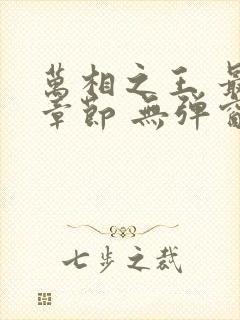 萬相之王 最
章節 無彈窗
七步之裁